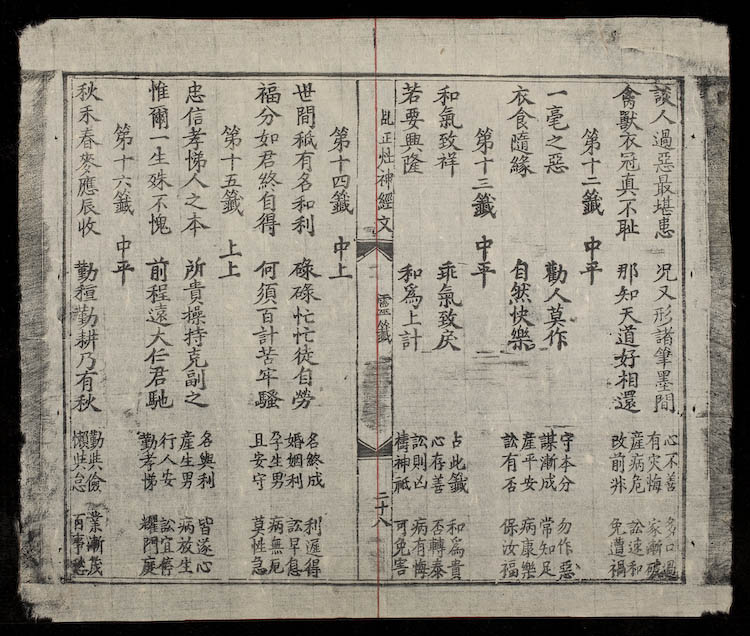 談人過惡最堪患 况又形諸筆墨間 心不善 多口過
禽獸衣冠真不恥 那知天道好相還 有灾悔 家漸破
產病危 訟速和
改前非 免遭禍
第十二籤 中平
一毫之惡 勸人莫作 守本分 勿作惡
謀漸成 常知足
衣食隨緣 自然快樂 產平安 病康樂
訟有否 保汝福
第十三籤 中平
和氣致祥 乖氣致戾 占此籤 和為貴
心存善 否轉泰
若要興隆 和爲上計 訟則凶 病有悔
禱神祇 可免害
乩正灶神經文 靈籤 二十八
第十四籤 中上
世間秖有名和利 碌碌忙忙徒自勞 名終成 利遲得
婚姻利 訟早息
福分如君終自得 何須百計苦牢騷 孕生男 病無厄
且安守 莫性急
第十五籤 上上
忠信孝悌人之本 所貴操持克副之 名與利 皆遂心
產生男 病放生
惟爾一生殊不愧 前程遠大仁君馳 行人安 訟宜舊
勤孝悌 耀門庭
第十六籤 中平
秋禾春麥應辰收 勤種勤耕乃有秋 勤與儉 業漸茂
懶與怠 百事愁